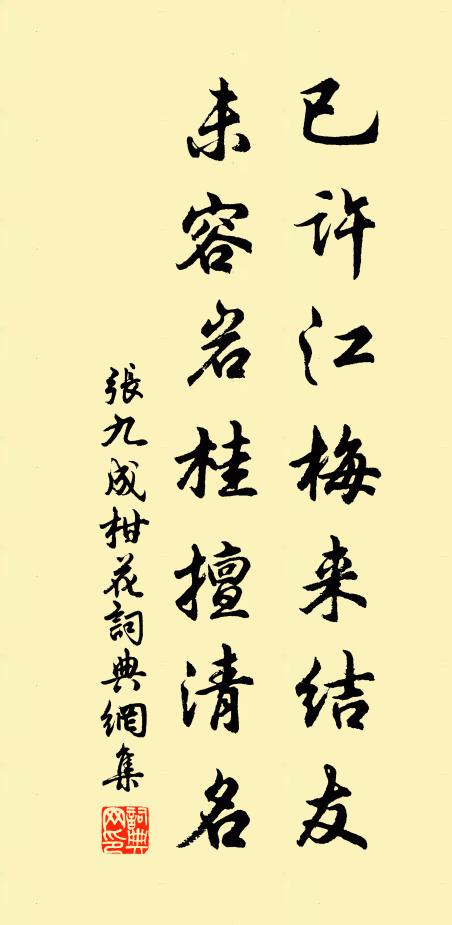 已许江梅来结友
未容岩桂擅清名
張九成柑花詞典網集
詞典
网印